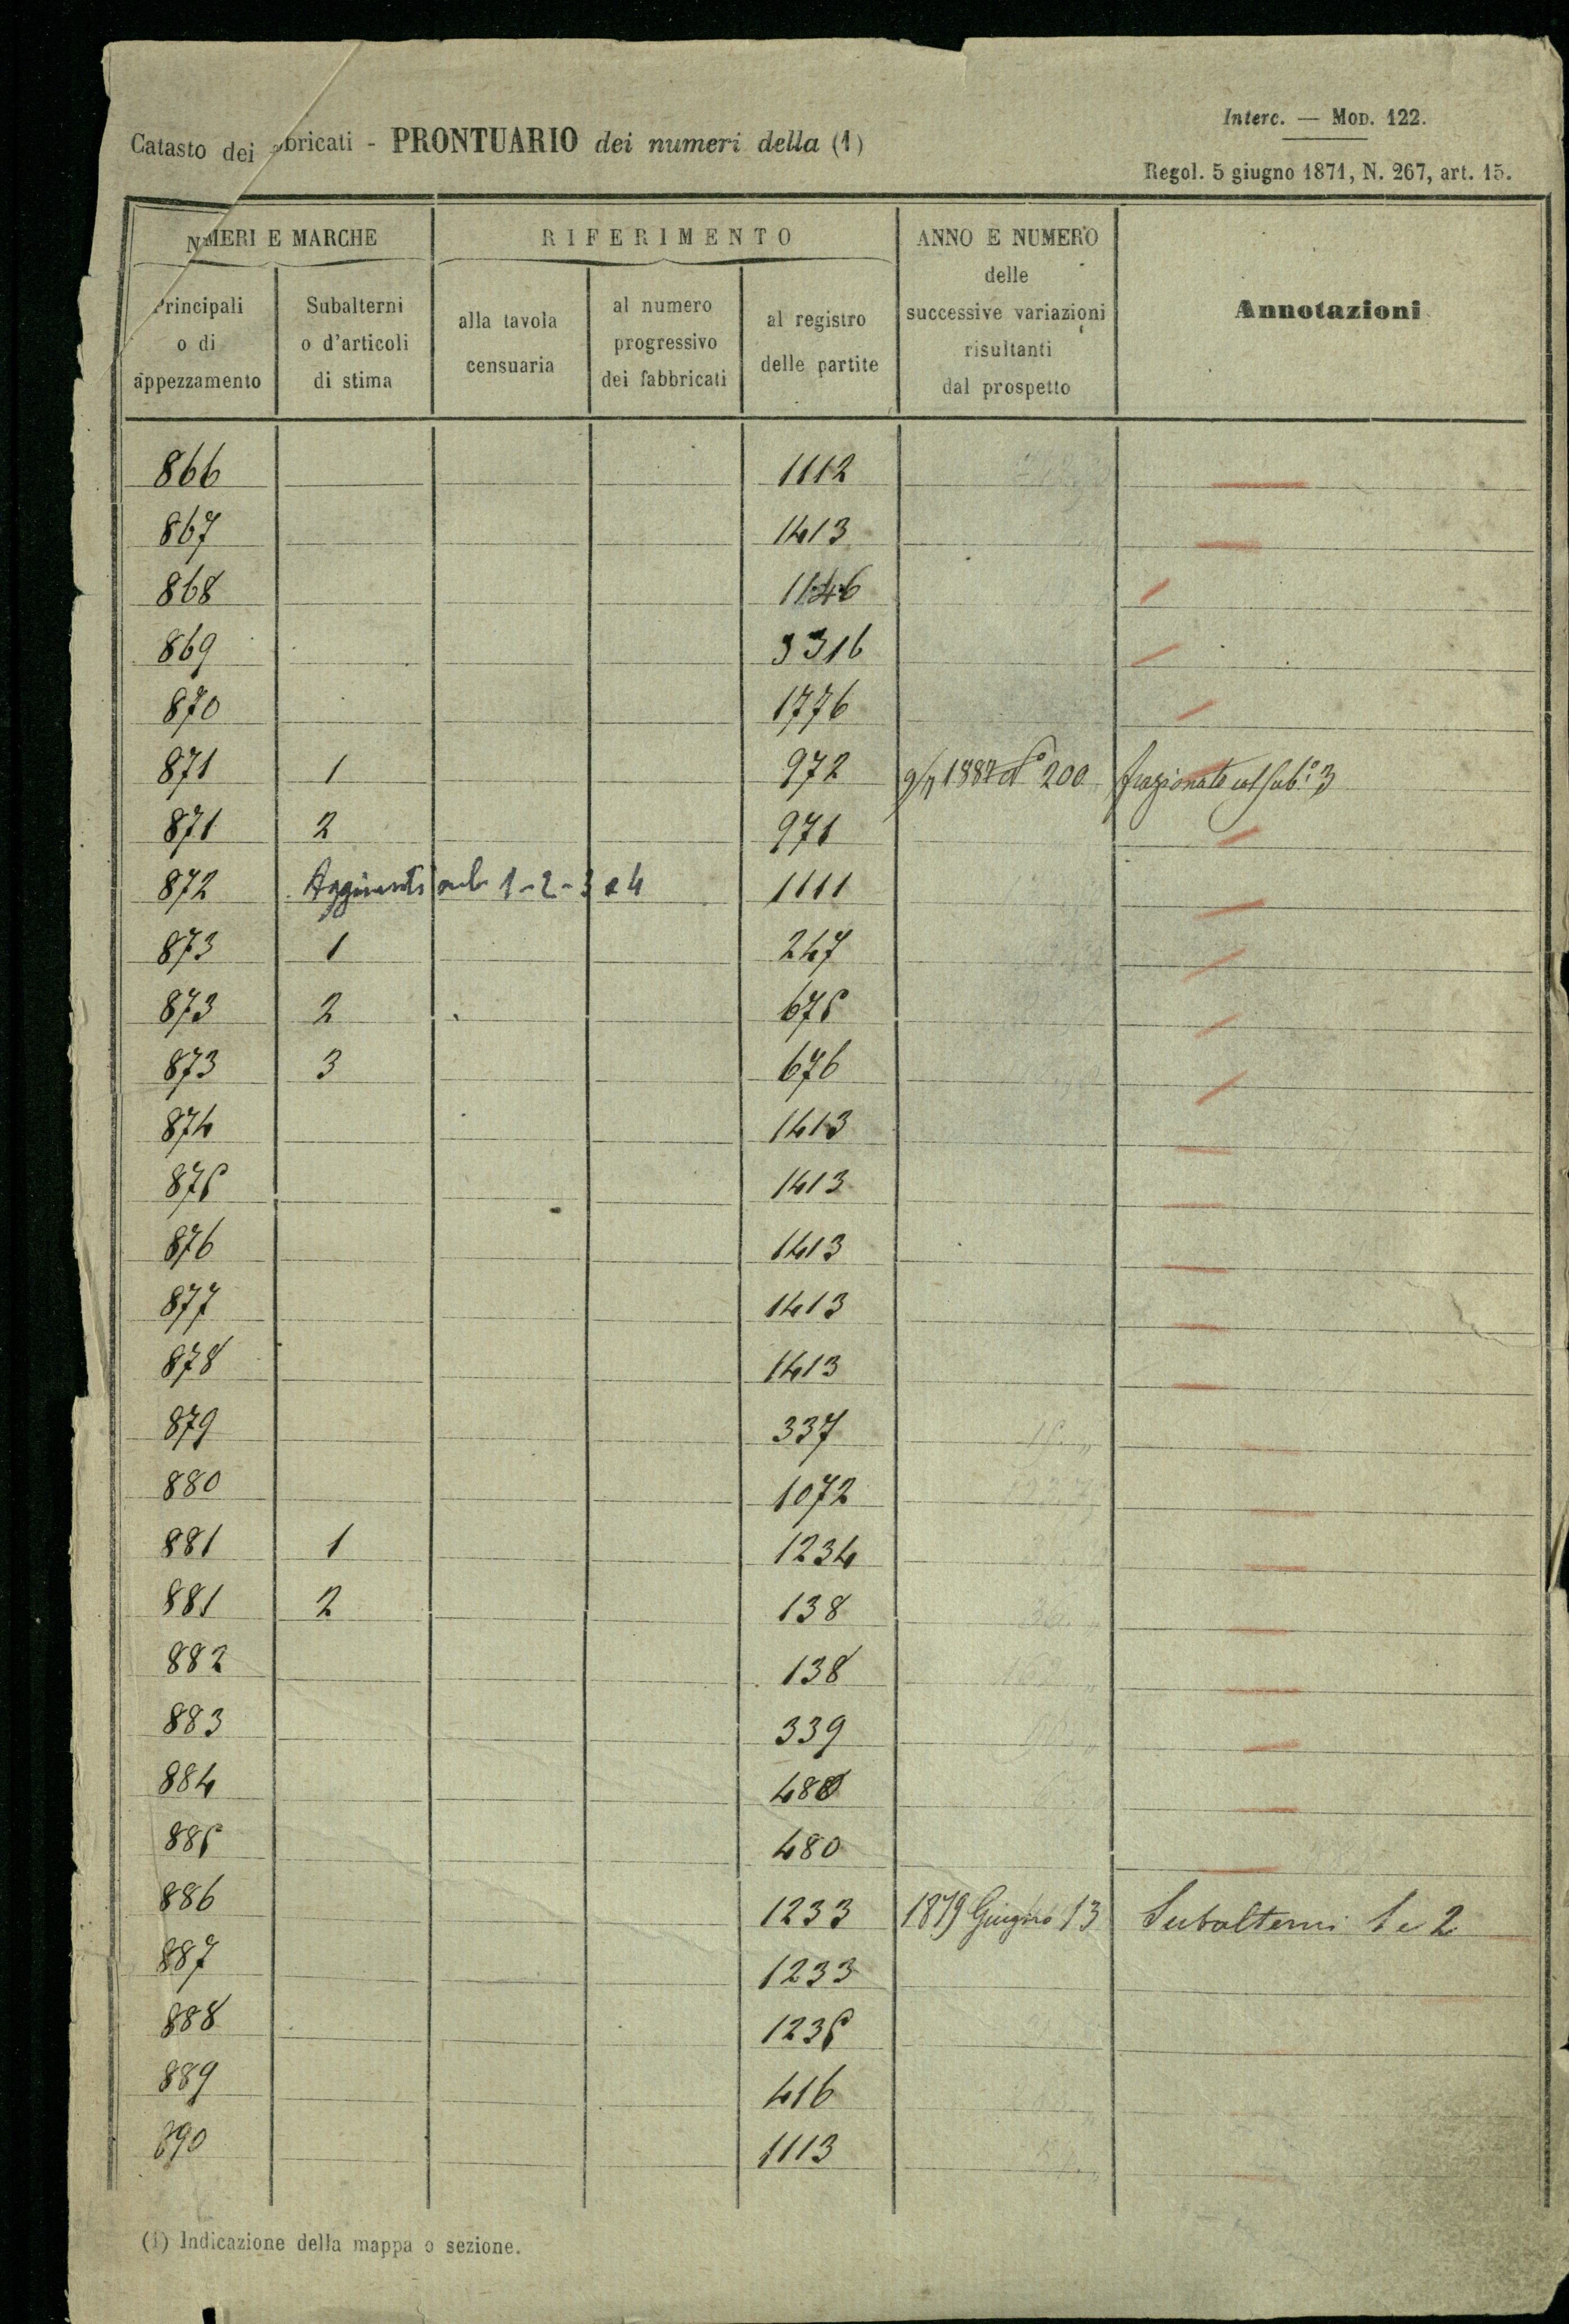 Interc. — Mod. 122.
Catasto dei bricati - PRONTUARIO dei numeri della (1)
Regol. 5 giugno 1871, N. 267, art. 15.
NMERI E MARCHE RIFERIMENTO ANNO E NUMERO delle successive variazioni risultanti dal prospetto Annotazioni
Principali o di appezzamento Subalterni o d'articoli di stima alla tavola censuaria al numero progressivo dei fabbricati al registro delle partite
866 1112
867 1413
868 1146
869 3316
870 1776
871 1 972 1887 N° 200 frazionato col sub.° 3
871 2 971
872 Aggiunti sub 1-2-3 e 4 1111
873 1 247
873 2 675
873 3 676
874 1413
875 1413
876 1413
877 1413
878 1413
879 337
880 1072
881 1 1234
881 2 138
882 138
883 339
884 480
885 480
886 1233 1879 Giugno 13 Subalterni 1 e 2
887 1233
888 1235
889 416
890 1113
(1) Indicazione della mappa o sezione.